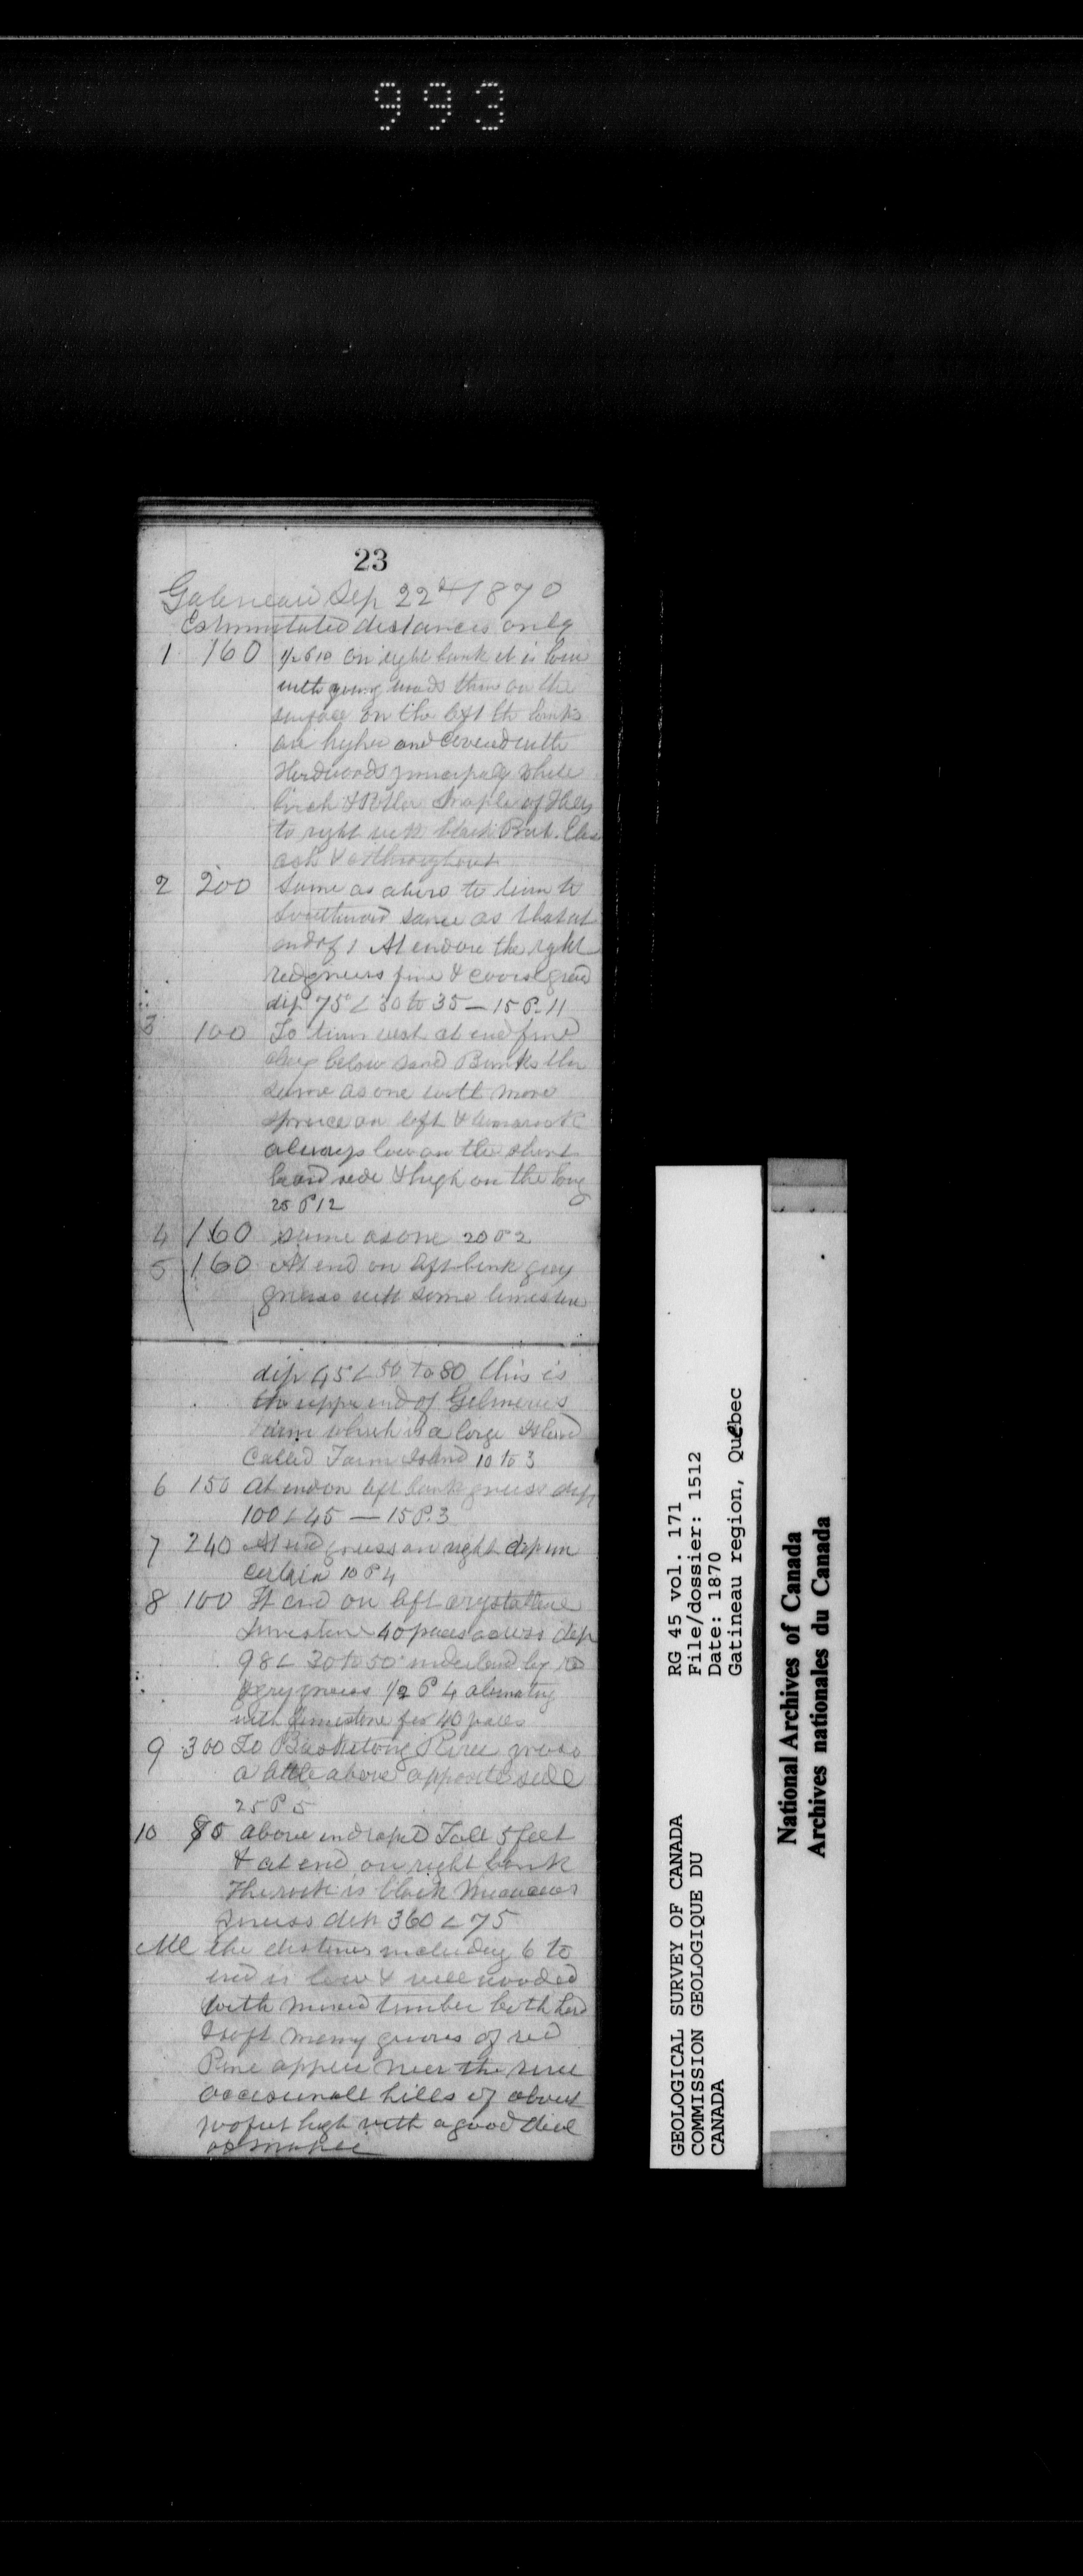 993
23
Gatineau Sep 22d 1870
Estimated distances only
1 160 on right bank it is low
with young woods than on the
surface on the left the banks
are higher and covered with
Hardwoods principaly white
birch & maple
to right with black Elm
ash & throughout
2 200 Same as above to turn to
same as that at
end of 1 At end on the right
red gneiss fine & coarse
dip 75° < 30 to 35 — 15 P. 11
3 100 To turn west at end fine
clay below sand Banks the
same as one with more
spruce on left & tamarack
always low on the short
side & high on the long
25 P 12
4 160 same as one 20 P 2
5 160 At end on left bank grey
gneiss with some limestone
dip 45 < 50 to 80 this is
the upper end of
Farm which is a large Island
Called Farm Island 10 to 3
6 150 At end on left bank gneiss dip
100 < 45 — 15 P. 3
7 240 At end gneiss on right dip un
certain 10 P 4
8 100 At end on left crystalline
limestone 40 paces across dip
98 < 30 to 50 by red
& grey gneiss 1/2 P 4 alternating
with limestone for 40 paces
9 300 To Baskatong River gneiss
a little above opposite side
25 P 5
10 above end rapid Fall 5 feet
& at end on right bank
The rock is black micaceous
gneiss dip 360 < 75
All the distances including 6 to
end is low & well wooded
with mixed timber both hard
& soft many groves of red
Pine appear near the river
occasional hills of about
feet high with a good deal
of maple
GEOLOGICAL SURVEY OF CANADA
COMMISSION GEOLOGIQUE DU
CANADA
RG 45 vol. 171
File/dossier: 1512
Date: 1870
Gatineau region, Québec
National Archives of Canada
Archives nationales du Canada